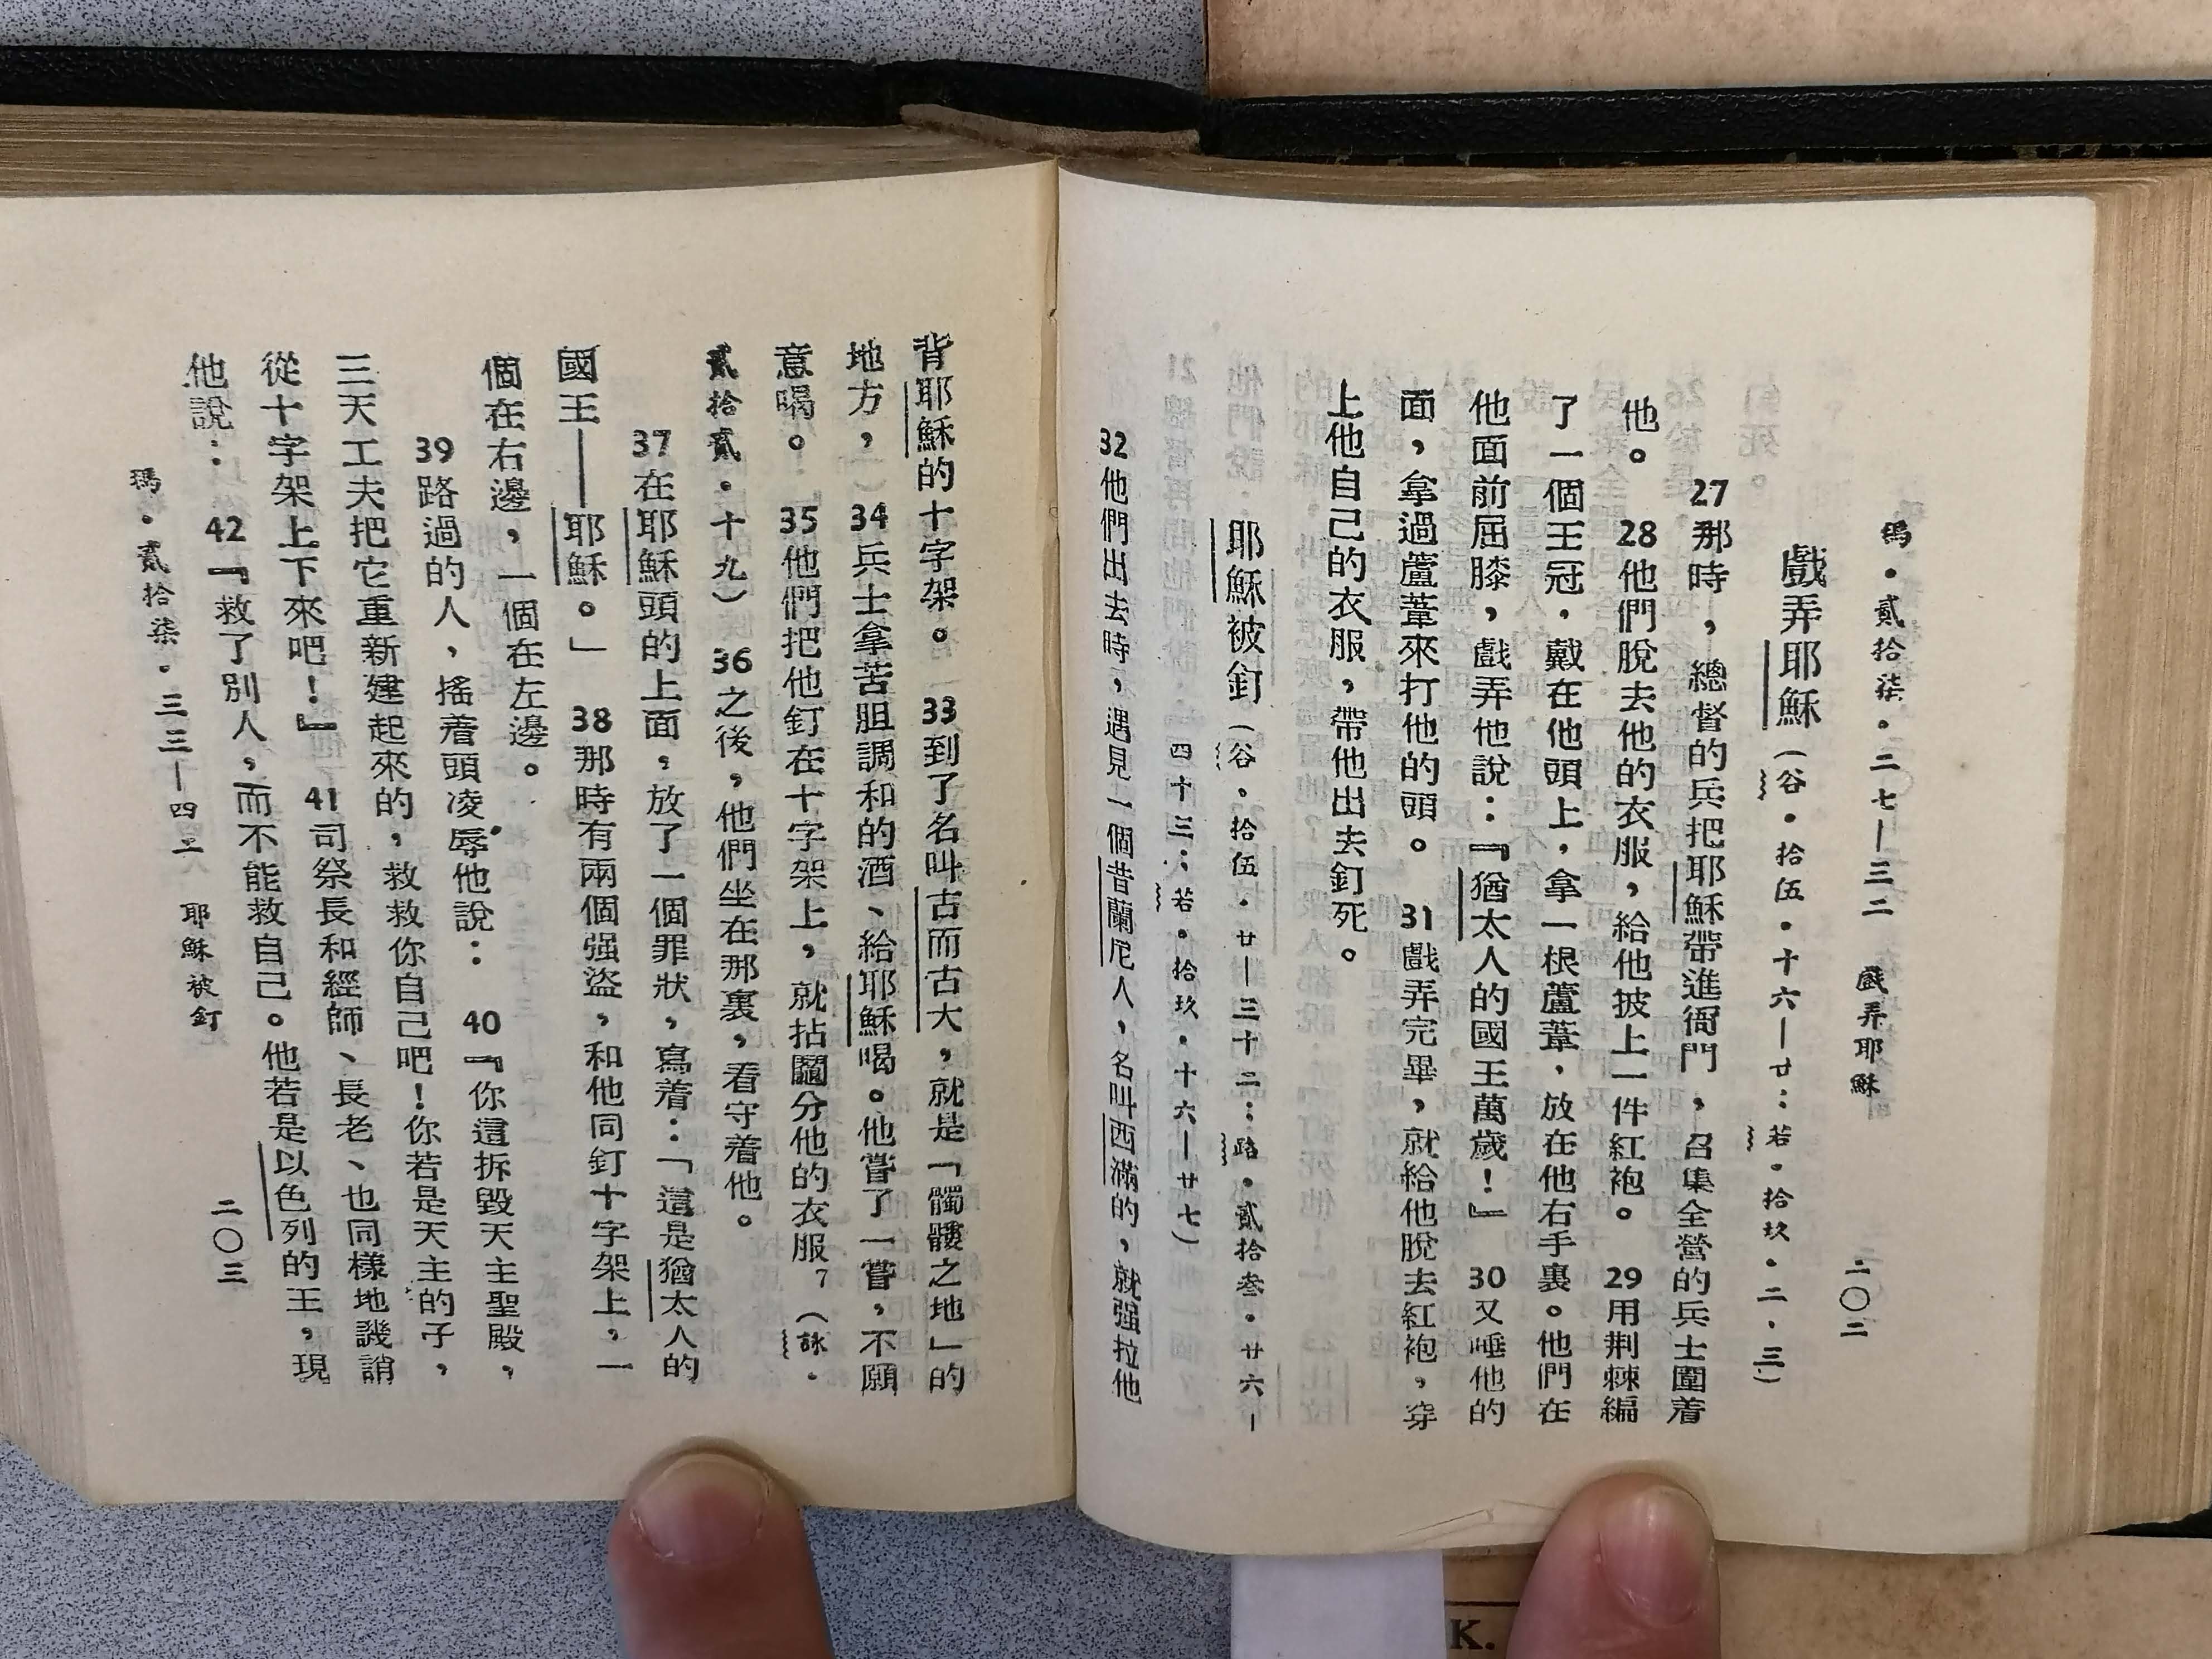 瑪・貳拾柒・二七—三二　戲弄耶穌　二〇二
戲弄耶穌（谷・拾伍・十六—廿：若・拾玖・二・三）
27那時，總督的兵把耶穌帶進衙門，召集全營的兵士圍着
他。　28他們脫去他的衣服，給他披上一件紅袍。　29用荆棘編
了一個王冠，戴在他頭上，拿一根蘆葦，放在他右手裏。他們在
他面前屈膝，戲弄他說：『猶太人的國王萬歲！』　30又唾他的
面，拿過蘆葦來打他的頭。　31戲弄完畢，就給他脫去紅袍，穿
上他自己的衣服，帶他出去釘死。
耶穌被釘（谷・拾伍・廿—三十二：路・貳拾叁・廿六—
四十三：若・拾玖・十六—廿七）
32他們出去時，遇見一個昔蘭尼人，名叫西滿的，就强拉他
背耶穌的十字架。　33到了名叫古而古大，就是「髑髏之地」的
地方，　34兵士拿苦胆調和的酒、給耶穌喝。他嘗了一嘗，不願
意喝。　35他們把他釘在十字架上，就拈鬮分他的衣服7（詠・
貳拾貳・十九）　36之後，他們坐在那裏，看守着他。
37在耶穌頭的上面，放了一個罪狀，寫着：「這是猶太人的
國王——耶穌。」　38那時有兩個强盜，和他同釘十字架上，一
個在右邊，一個在左邊。
39路過的人，搖着頭凌辱他說：　40『你這拆毀天主聖殿，
三天工夫把它重新建起來的，救救你自己吧！你若是天主的子，
從十字架上下來吧！』　41司祭長和經師、長老、也同樣地譏誚
他說：　42『救了別人，而不能救自己。他若是以色列的王，現
瑪・貳拾柒・三三—四二　耶穌被釘　二〇三
K.